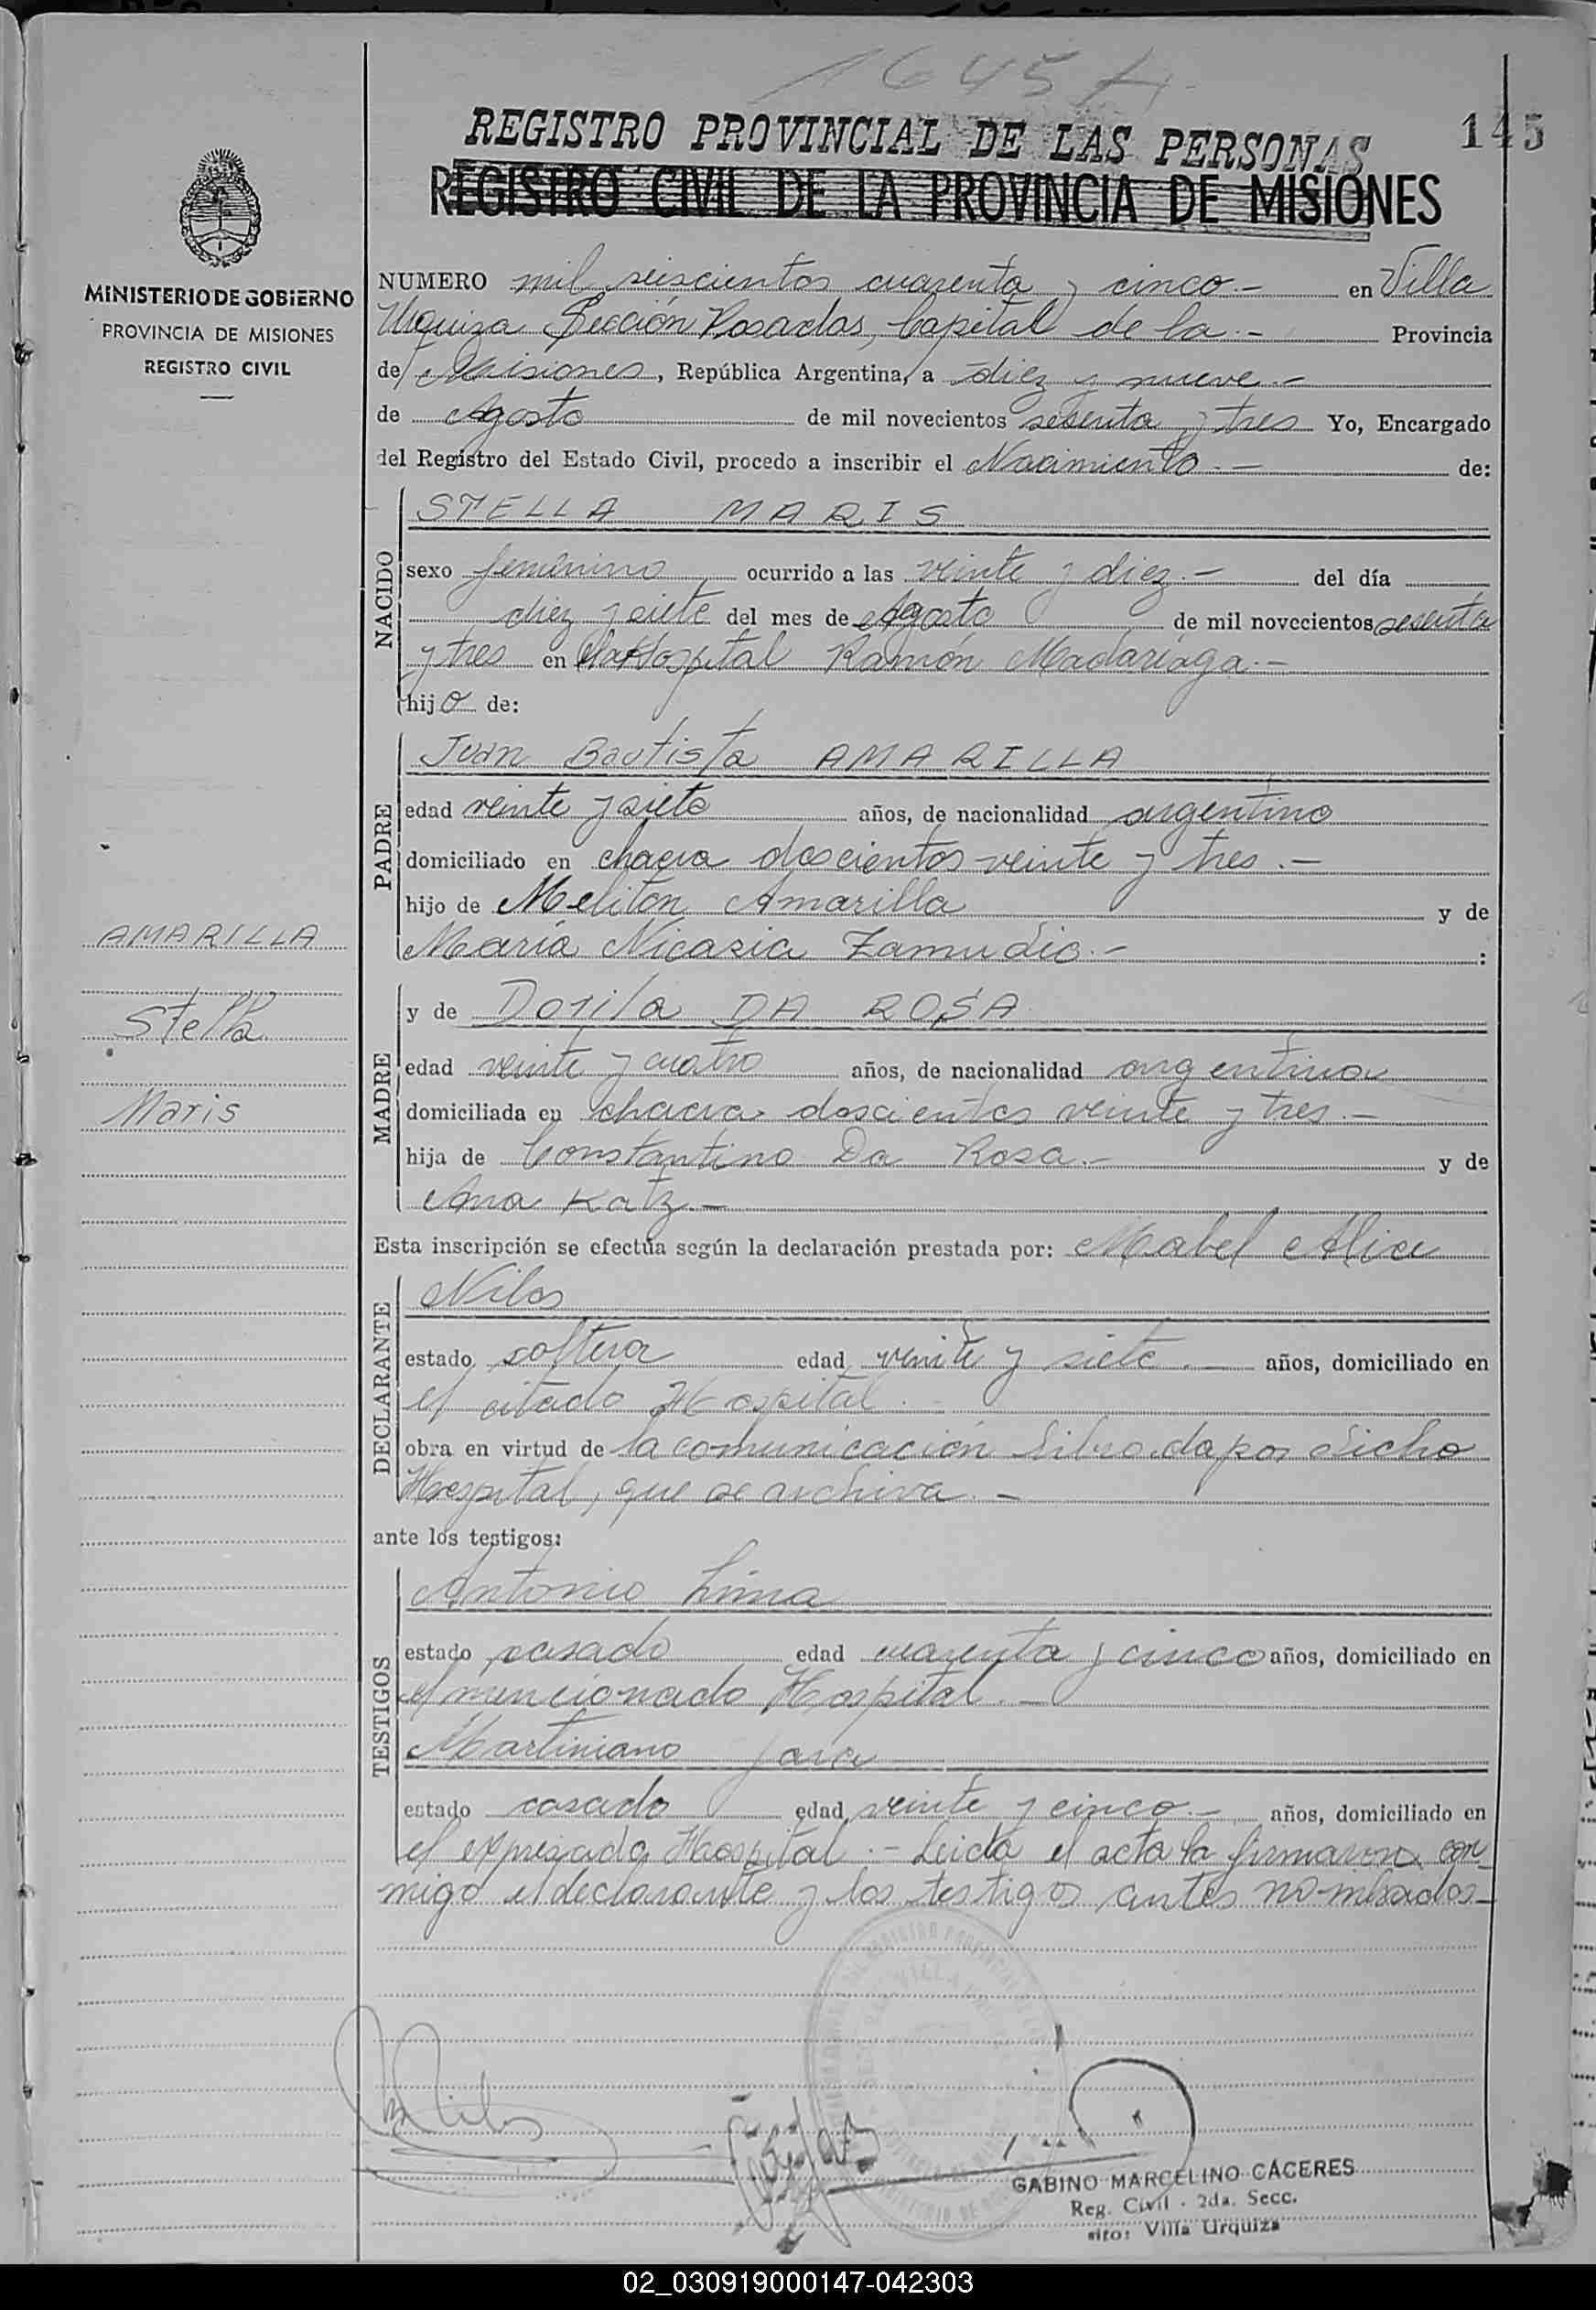 1645 A
145
REGISTRO PROVINCIAL DE LAS PERSONAS
REGISTRO CIVIL DE LA PROVINCIA DE MISIONES
MINISTERIO DE GOBIERNO
PROVINCIA DE MISIONES
REGISTRO CIVIL
NUMERO mil seiscientos cuarenta y cinco.- en Villa
Urquiza Sección Posadas, Capital de la.- Provincia
de Misiones, República Argentina, a diez y nueve.-
de Agosto de mil novecientos sesenta y tres Yo, Encargado
del Registro del Estado Civil, procedo a inscribir el Nacimiento.- de:
NACIDO
STELLA MARIS
sexo femenino ocurrido a las veinte y diez.- del día
diez y siete del mes de Agosto de mil novecientos sesenta
y tres en Hospital Ramón Madariaga.-
hijo de:
PADRE
Juan Bautista AMARILLA
edad veinte y siete años, de nacionalidad argentino
domiciliado en chacra doscientos veinte y tres.-
hijo de Melitón Amarilla y de
María Nicasia Zamudio.- :
AMARILLA
Stella
Maris
MADRE
y de Dorila DA ROSA
edad veinte y cuatro años, de nacionalidad argentina
domiciliada en chacra doscientos veinte y tres.-
hija de Constantino Da Rosa.- y de
Ana Katz.-
Esta inscripción se efectúa según la declaración prestada por: Mabel Alice
DECLARANTE
Nilos
estado soltera edad veinte y siete.- años, domiciliado en
el citado Hospital.
obra en virtud de la comunicación librada por dicho
Hospital, que se archiva.-
ante los testigos:
TESTIGOS
Antonio Lima
estado casado edad cuarenta y cinco años, domiciliado en
el mencionado Hospital.-
Martiniano Jara
estado casado edad veinte y cinco.- años, domiciliado en
el expresado Hospital.- Leida el acta la firmaron con-
migo el declarante y los testigos antes nombrados-
GABINO MARCELINO CÁCERES
Reg. Civil - 2da. Secc.
sito: Villa Urquiza
02_030919000147-042303